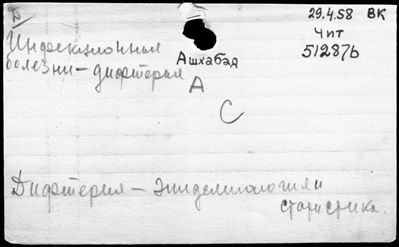 Б
29.4.58 ВК
Чит
51287б
Инфекционная
болезни – дифтерия
Ашхабад
А
С
Дифтерия – эпидемиология и
статистика.